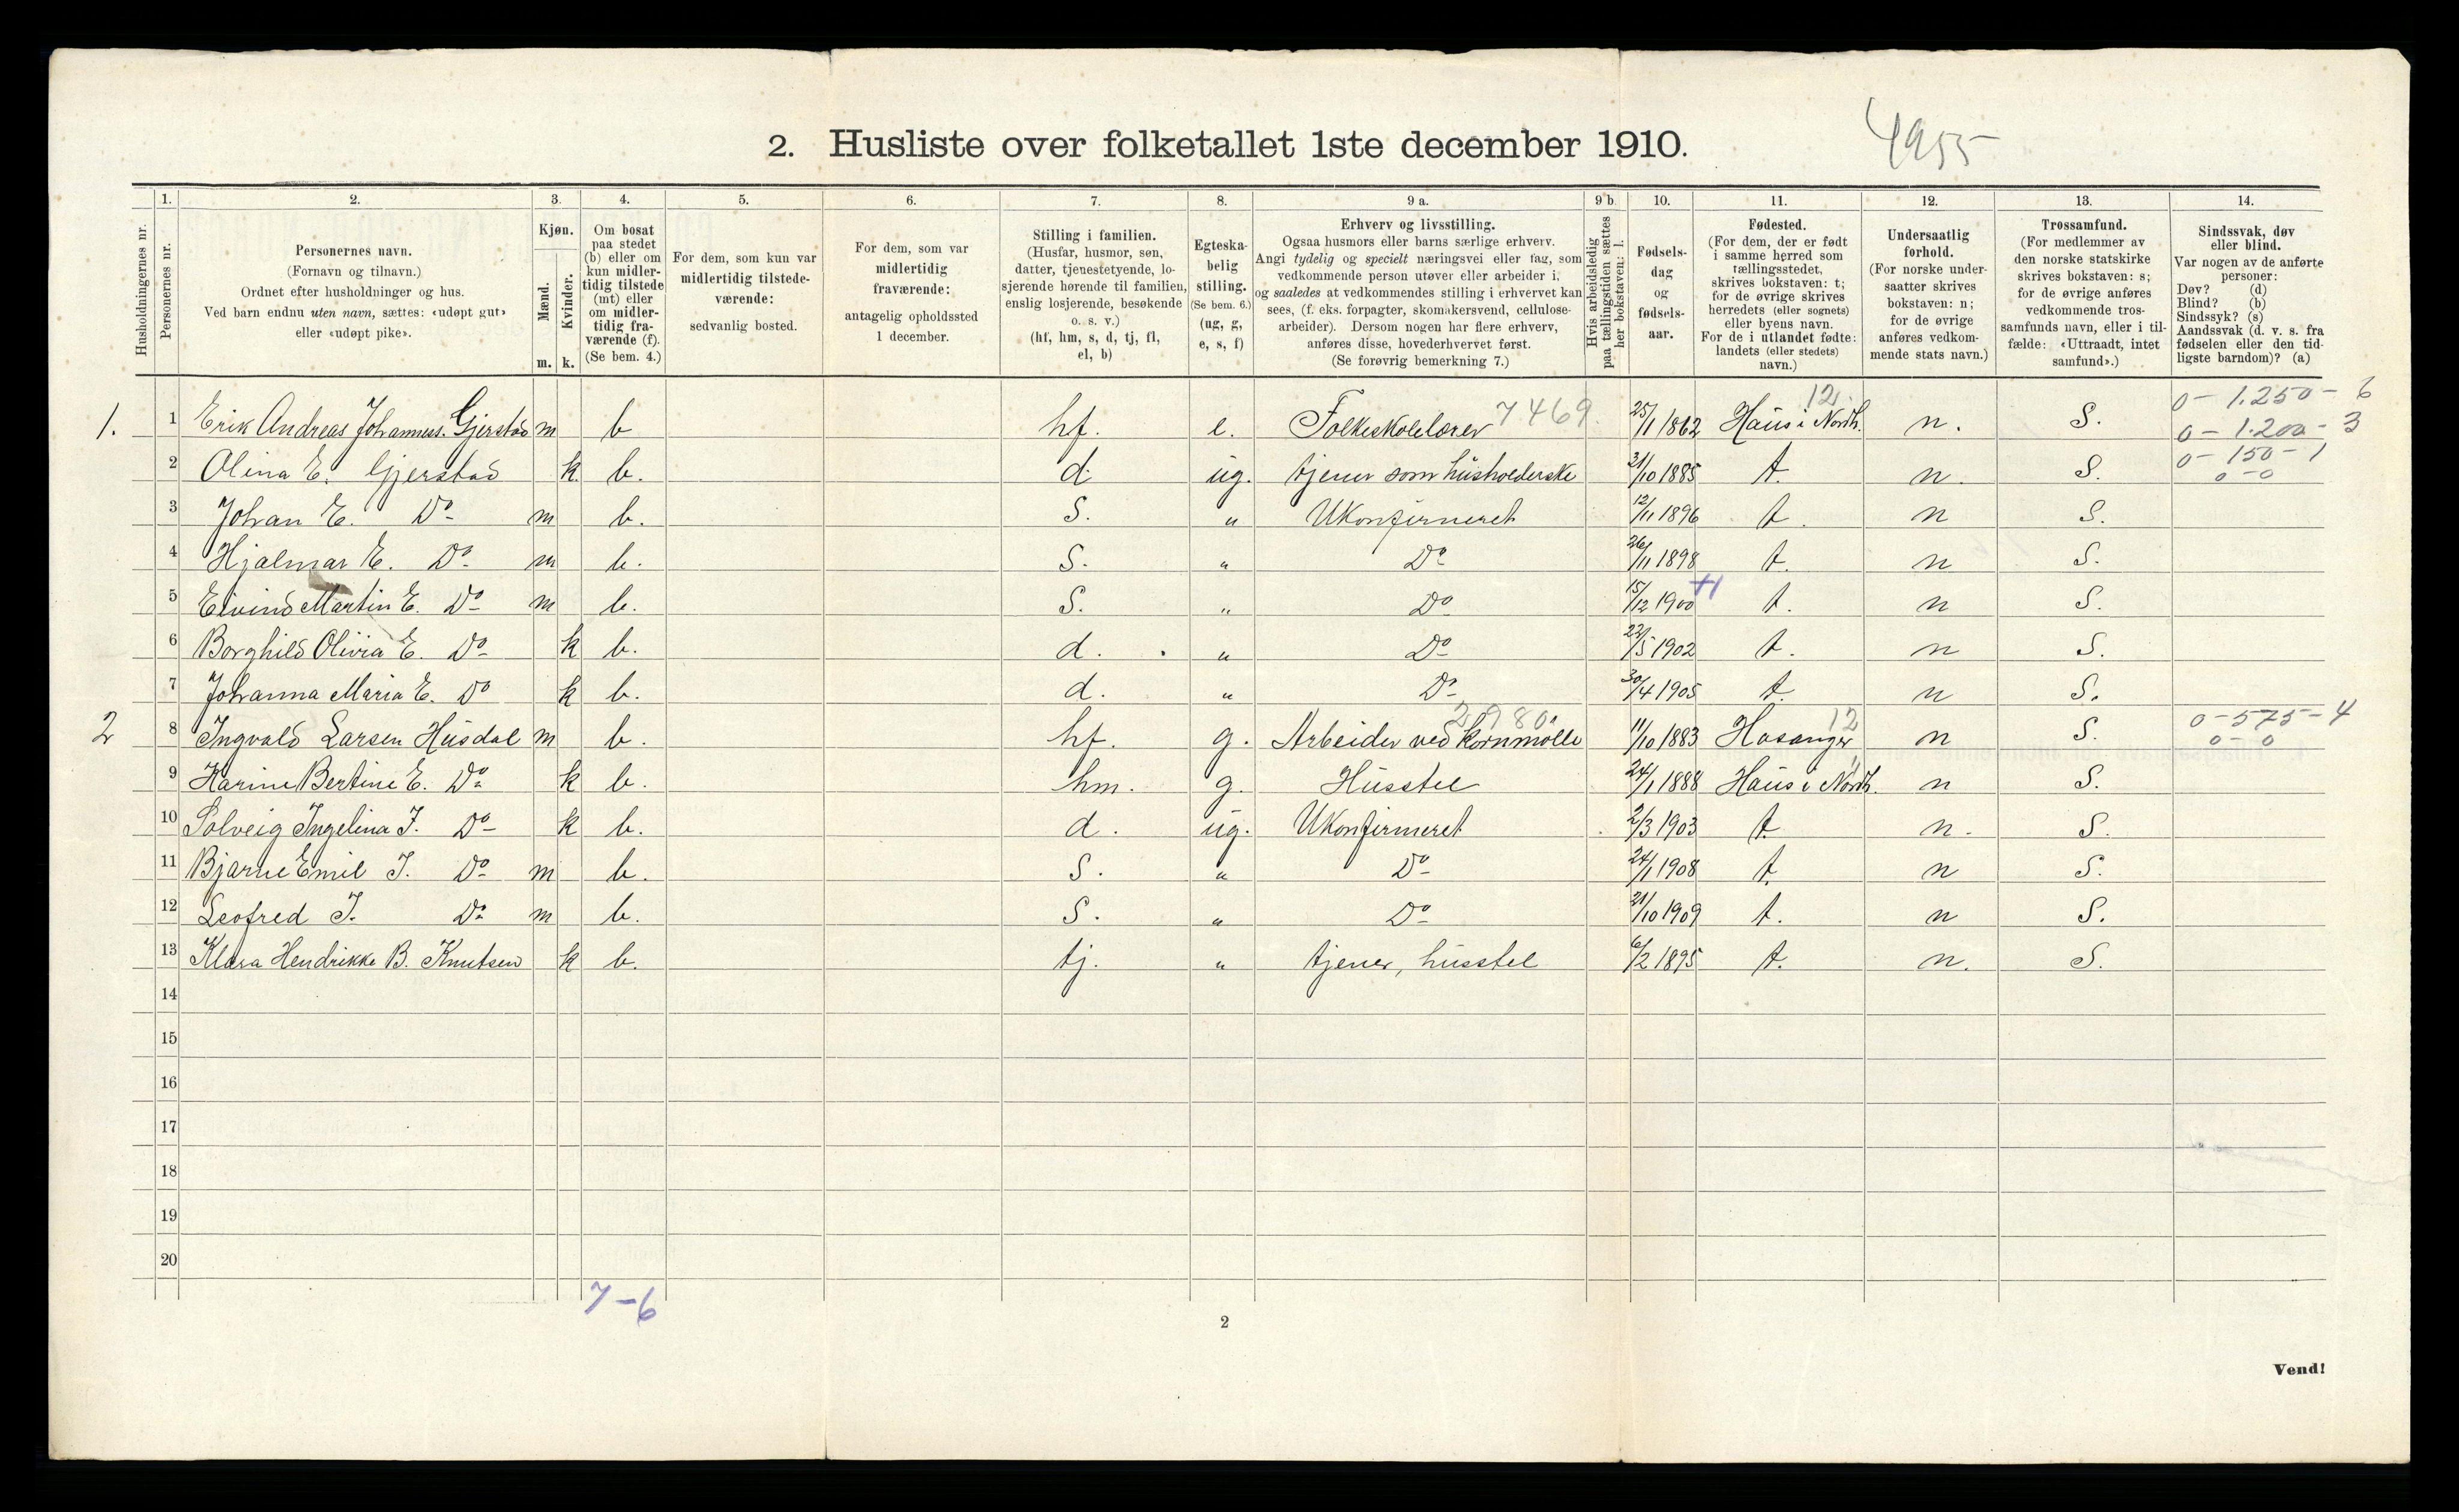 2. Husliste over folketallet 1ste december 1910.
4955
1. 2. 3. 4. 5. 6. 7. 8. 9 a. 9 b. 10. 11. 12. 13. 14.
Husholdningernes nr.
Personernes nr.
Personernes navn.
(Fornavn og tilnavn.)
Ordnet efter husholdninger og hus.
Ved barn endnu uten navn, sættes: «udøpt gut»
eller «udøpt pike».
Kjøn.
Mænd.
Kvinder.
m. k.
Om bosat
paa stedet
(b) eller om
kun midler-
tidig tilstede
(mt) eller
om midler-
tidig fra-
værende (f).
(Se bem. 4.)
For dem, som kun var
midlertidig tilstede-
værende:
sedvanlig bosted.
For dem, som var
midlertidig
fraværende:
antagelig opholdssted
1 december.
Stilling i familien.
(Husfar, husmor, søn,
datter, tjenestetyende, lo-
sjerende hørende til familien,
enslig losjerende, besøkende
o. s. v.)
(hf, hm, s, d, tj, fl,
el, b)
Egteska-
belig
stilling.
(Se bem. 6.)
(ug, g,
e, s, f)
Erhverv og livsstilling.
Ogsaa husmors eller barns særlige erhverv.
Angi tydelig og specielt næringsvei eller fag, som
vedkommende person utøver eller arbeider i,
og saaledes at vedkommendes stilling i erhvervet kan
sees, (f. eks. forpagter, skomakersvend, cellulose-
arbeider). Dersom nogen har flere erhverv,
anføres disse, hovederhvervet først.
(Se forøvrig bemerkning 7.)
Hvis arbeidsledig
paa tællingstiden sættes
her bokstaven: l.
Fødsels-
dag
og
fødsels-
aar.
Fødested.
(For dem, der er født
i samme herred som
tællingsstedet,
skrives bokstaven: t;
for de øvrige skrives
herredets (eller sognets)
eller byens navn.
For de i utlandet fødte:
landets (eller stedets)
navn.)
Undersaatlig
forhold.
(For norske under-
saatter skrives
bokstaven: n;
for de øvrige
anføres vedkom-
mende stats navn.)
Trossamfund.
(For medlemmer av
den norske statskirke
skrives bokstaven: s;
for de øvrige anføres
vedkommende tros-
samfunds navn, eller i til-
fælde: «Uttraadt, intet
samfund».)
Sindssvak, døv
eller blind.
Var nogen av de anførte
personer:
Døv? (d)
Blind? (b)
Sindssyk? (s)
Aandssvak (d. v. s. fra
fødselen eller den tid-
ligste barndom)? (a)
7469. 12. 0 - 1.250 - 6
1. 1 Erik Andreas Johanness. Gjerstad m b hf. e. Folkeskolelærer 25/1 1862 Haus i Nordh. n. S. 0 - 1.200 - 3
0 - 150 - 1
2 Olina E. Gjerstad k b. d. ug. tjener som husholderske 31/10 1885 t. n. S. 0 - 0
3 Johan E. Do m b. S. " Ukonfirmeret 12/11 1896 t. n S.
4 Hjalmar E. Do m b. S. " Do 26/11 1898 t. n S.
5 Eivind Martin E. Do m b. S. " Do 15/12 1900 t. n S.
6 Borghild Olivia E. Do k b. d. " Do 22/5 1902 t. n S.
7 Johanna Maria E. Do k b. d. " Do 30/4 1905 t. n S.
2980. 12 0 - 575 - 4
2 8 Ingvald Larsen Husdal m b. hf. g. Arbeider ved kornmølle 11/10 1883 Hosanger n S. 0 - 0
9 Karine Bertine E. Do k b. hm. g. Husstel 24/1 1888 Haus i Nordh. n S.
10 Solveig Ingelina I. Do k b. d. ug. Ukonfirmeret 2/3 1903 t. n. S.
11 Bjarne Emil I. Do m b. S. " Do 24/1 1908 t. n S.
12 Leofred I. Do m b. S. " Do 21/10 1909 t. n S.
13 Klara Hendrikke B. Knutsen k b. tj. " tjener, husstel 6/2 1895 t. n. S.
14
15
16
17
18
19
20
7-6
2
Vend!